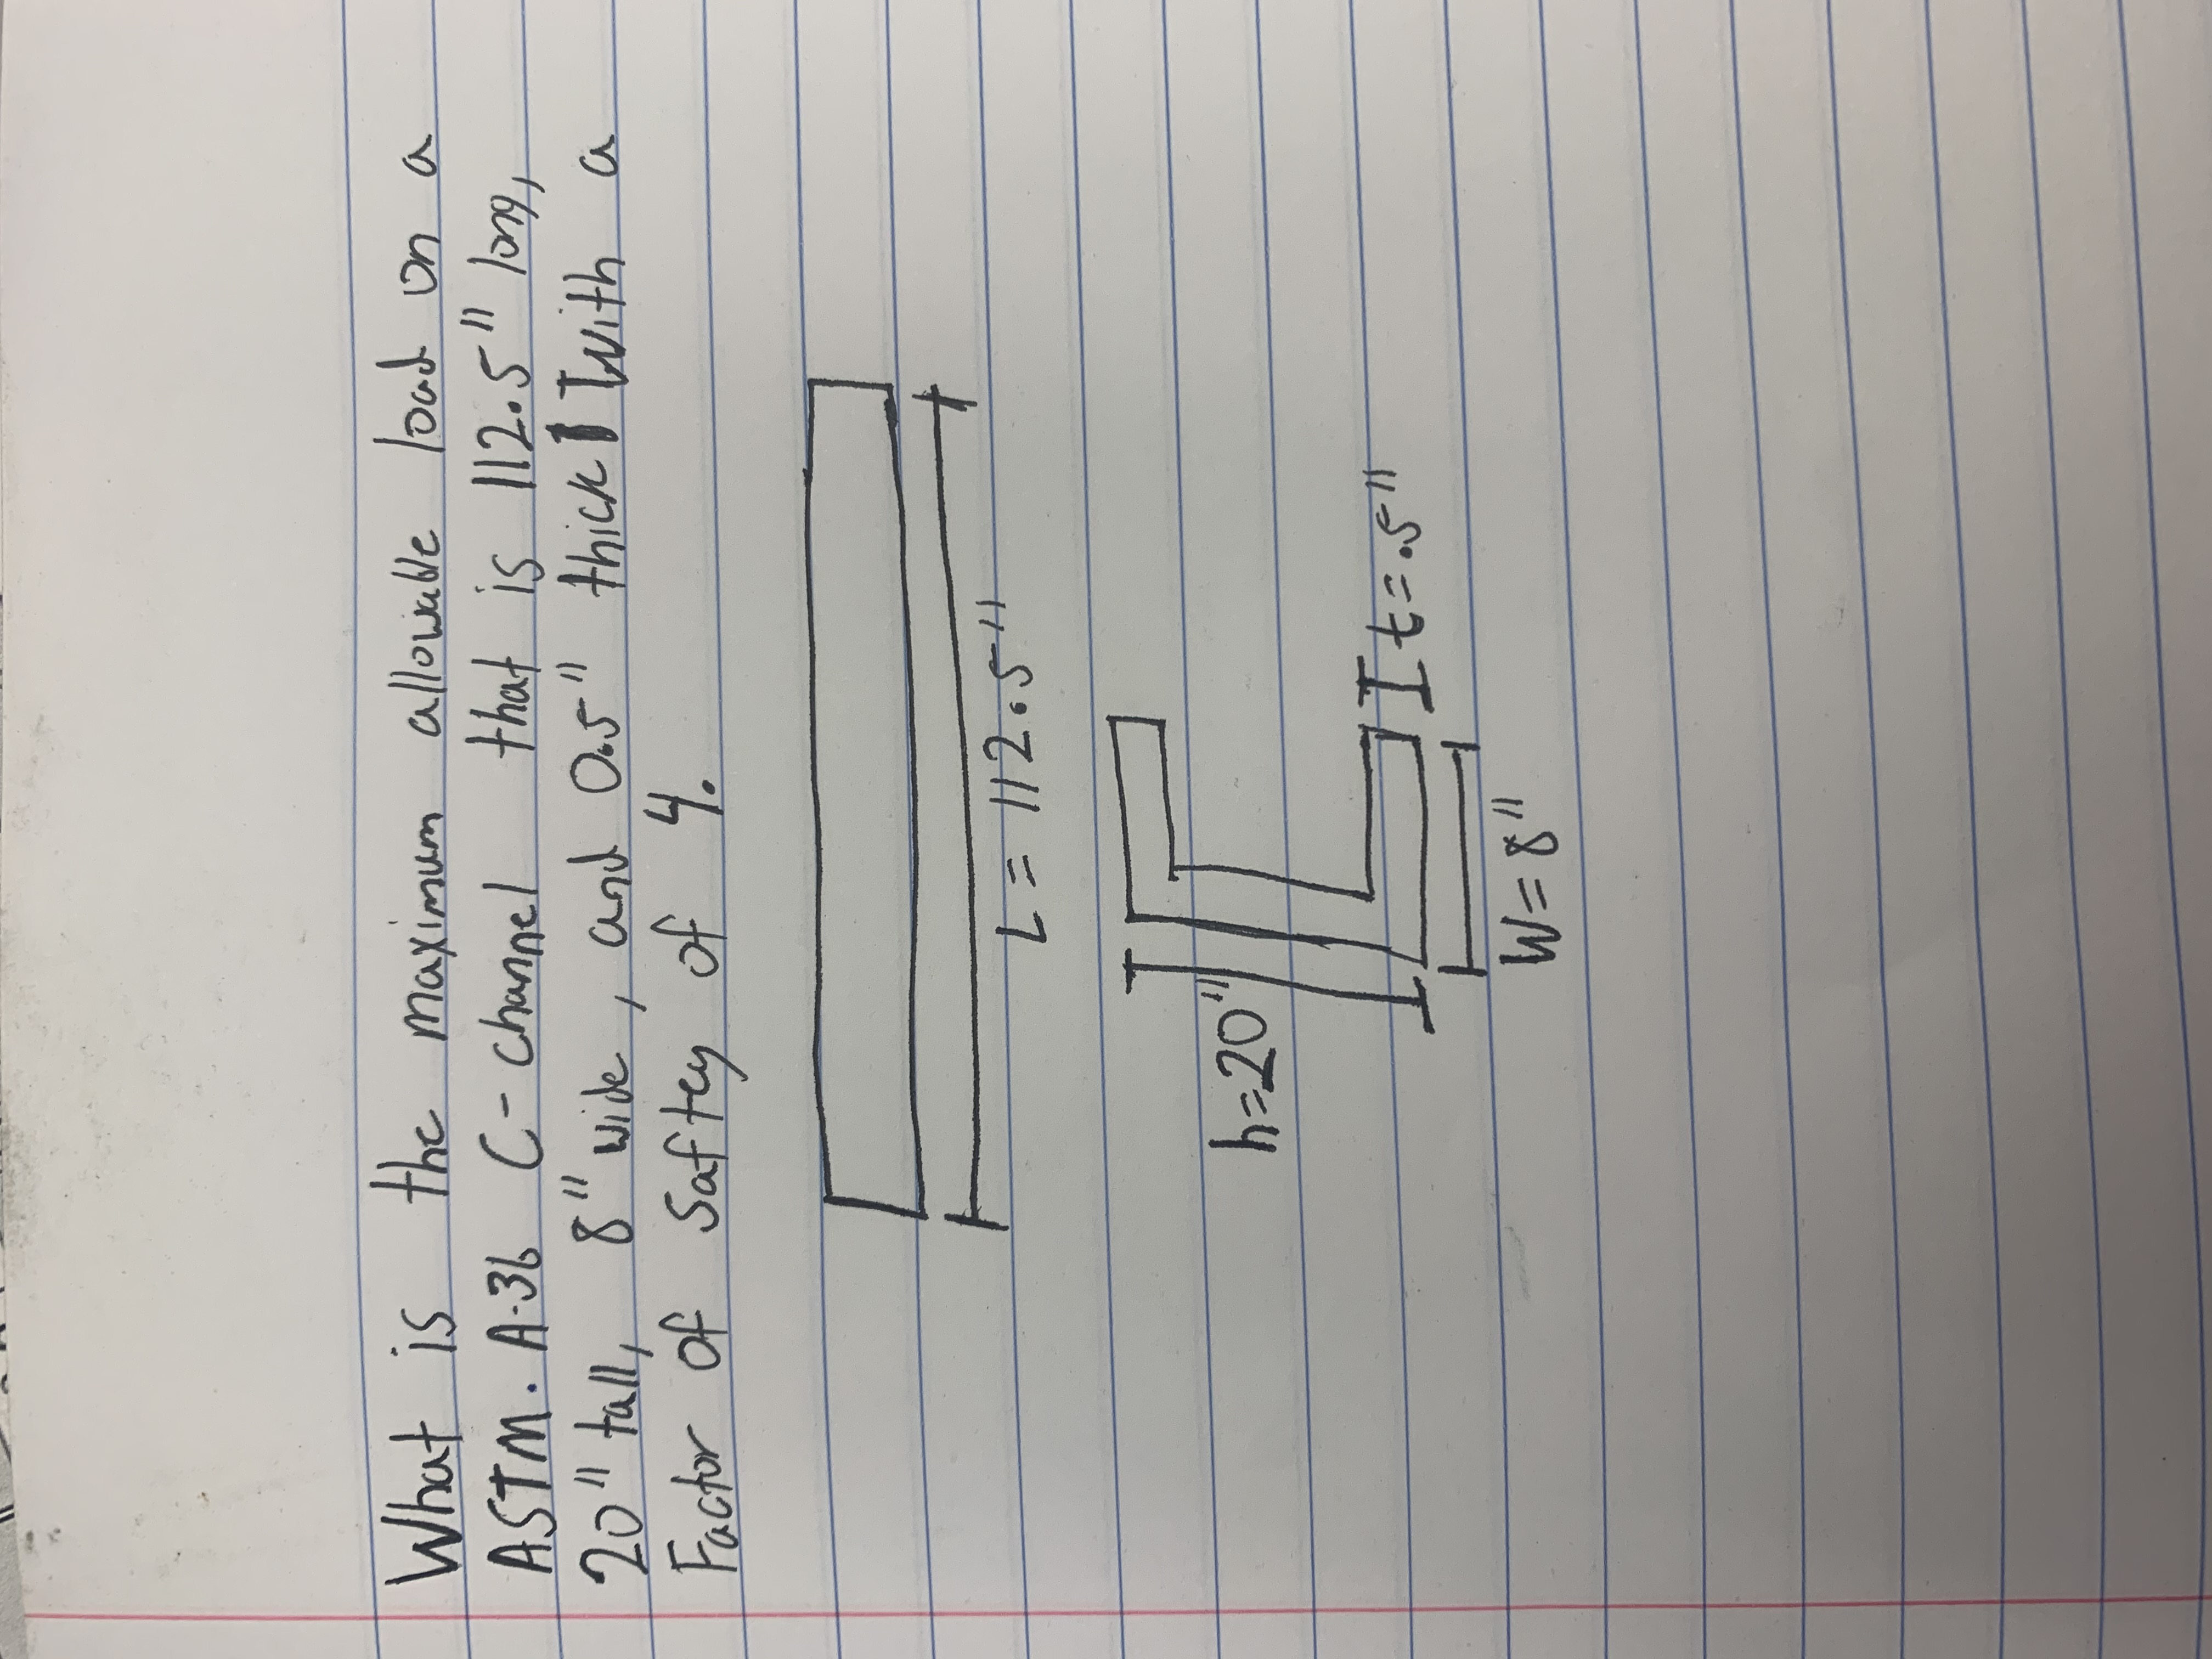 What is the maximum allowable load on a
ASTM. A-36 C-channel that is 112.5" long,
20" tall, 8" wide, and 0.5" thick with a
Factor of Saftey of 4.
L = 112.5"
h=20"
t=.5"
W=8"